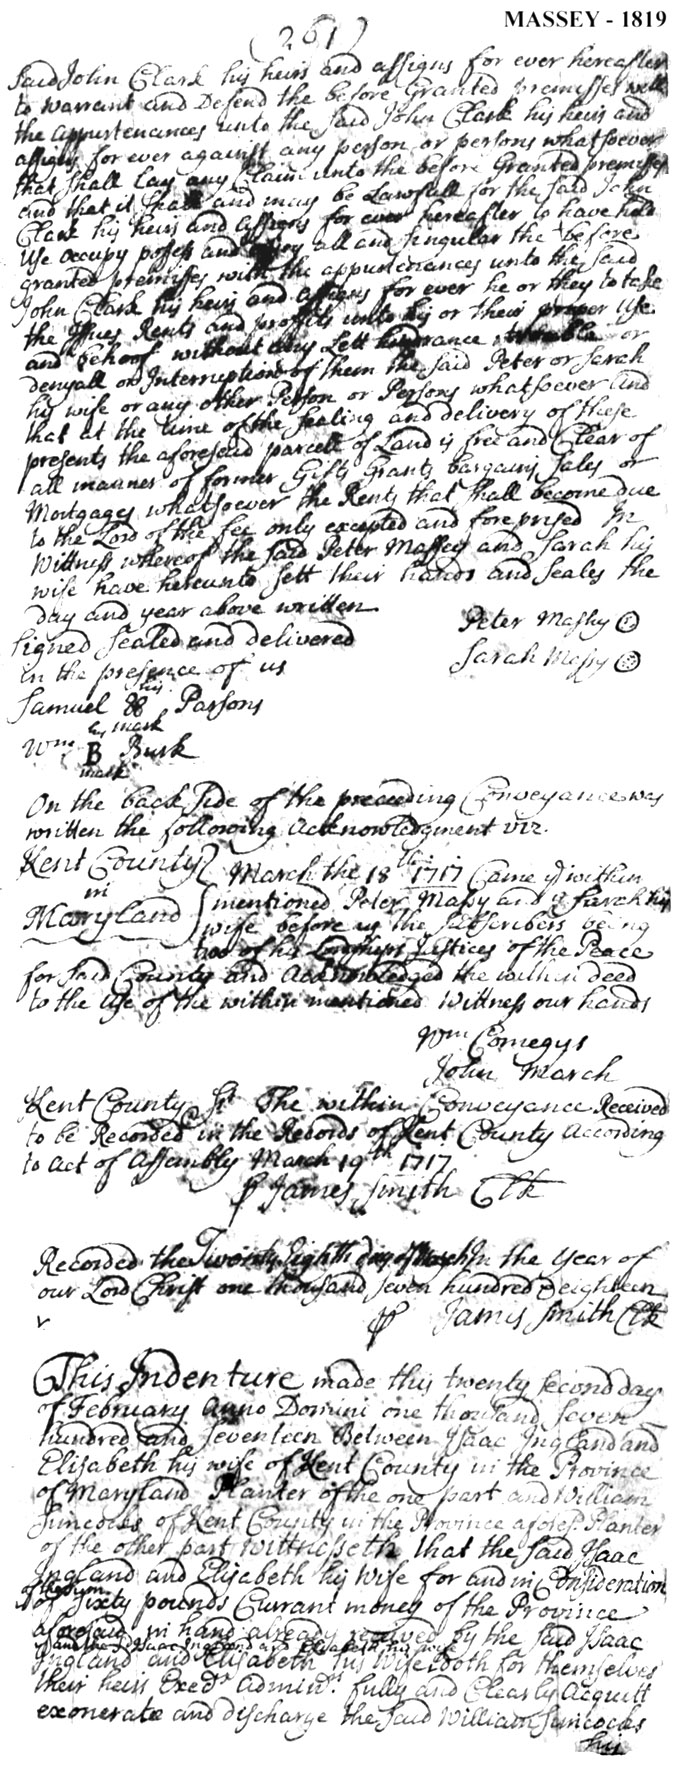 MASSEY - 1819
(261)
Said John Clark his heirs and assigns for ever hereafter
to warrant and Defend the before Granted premisses with
the appurtenances unto the said John Clark his heirs and
assigns for ever against any person or persons whatsoever
that shall Lay any Claim unto the before Granted premisses
and that it shall and may be Lawfull for the said John
Clark his heirs and assigns for ever hereafter to have hold
Use occupy possess and all and singular the before
granted premisses with the appurtenances unto the said
John Clark his heirs and assigns for ever he or they to take
the Issues Rents and profitts unto his or their proper Use
and behoof without any Lett hindrance trouble or
denyall or Interruption of them the said Peter or Sarah
his wife or any other Person or Persons whatsoever And
that at the time of the sealing and delivery of these
presents the aforesaid parcell of Land is free and Clear of
all manner of former Gifts Grants bargains sales or
Mortgages whatsoever the Rents that shall become due
to the Lord of the fee only excepted and foreprised In
Wittness whereof the said Peter Massey and Sarah his
wife have hereunto sett their hands and seales the
day and year above written
Peter Massy
Signed Sealed and delivered
Sarah Massy
in the presence of us
his
Samuel 8 Parsons
mark
his
Wm B Burk
mark
On the back side of the preceeding Conveyance was
written the following Acknowledgment viz.
Kent County
in
Maryland
March the 18th 1717 Came ye within
mentioned Peter Massy and Sarah his
wife before us the subscribers being
two of his Lordships Justices of the Peace
for said County and Acknowledged the within deed
to the use of the within mentioned Wittness our hands
Wm Comegys
John March
Kent County Sst The within Conveyance Received
to be Recorded in the Records of Kent County According
to Act of Assembly March 19th 1717
James Smith Clk
Recorded the Twenty Eighth day of March In the Year of
our Lord Christ one thousand seven hundred eighteen
James Smith Clk
This Indenture made this twenty second day
of February Anno Domini one thousand seven
hundred and seventeen Between Isaac Ingland and
Elisabeth his wife of Kent County in the Province
of Maryland Planter of the one part and William
Simcocks of Kent County in the Province afores.d Planter
of the other part Wittnesseth that the said Isaac
Ingland and Elisabeth his wife for and in Consideration
of the sum
of sixty pounds Currant money of the Province
aforesaid in hand already received by the said Isaac
and the sd Isaac Ingland and Elisabeth his wife
Ingland and Elisabeth his wife doth for themselves
their heirs Exed.rs Admin.rs fully and Clearly Acquitt
exonerate and discharge the said William Simcocks
his